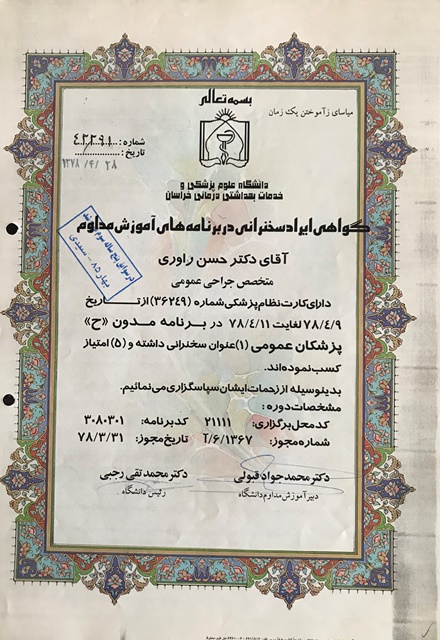 بسمه تعالی
میاسای زآموختن یک زمان
شماره : ۴۲۲۹۱
تاریخ : ۱۳۷۸ /۴/ ۲۸
دانشگاه علوم پزشکی و
خدمات بهداشتی درمانی خراسان
گواهی ایراد سخنرانی در برنامه های آموزش مداوم
آقای دکتر حسن راوری
متخصص جراحی عمومی
دارای کارت نظام پزشکی شماره (۳۶۲۴۹) از تاریخ
۷۸/۴/۹ لغایت ۷۸/۴/۱۱ در برنامه مدون «ح»
پزشکان عمومی (۱) عنوان سخنرانی داشته و (۵) امتیاز
کسب نموده اند.
بدینوسیله از زحمات ایشان سپاسگزاری می نمائیم.
مشخصات دوره :
کد محل برگزاری: ۲۱۱۱۱ کد برنامه: ۳۰۸۰۳۰۱
شماره مجوز: ۱۳۶۷/۶/آ تاریخ مجوز: ۷۸/۳/۳۱
دکتر محمد جواد قبولی دکتر محمد تقی رجبی
دبیر آموزش مداوم دانشگاه رئیس دانشگاه